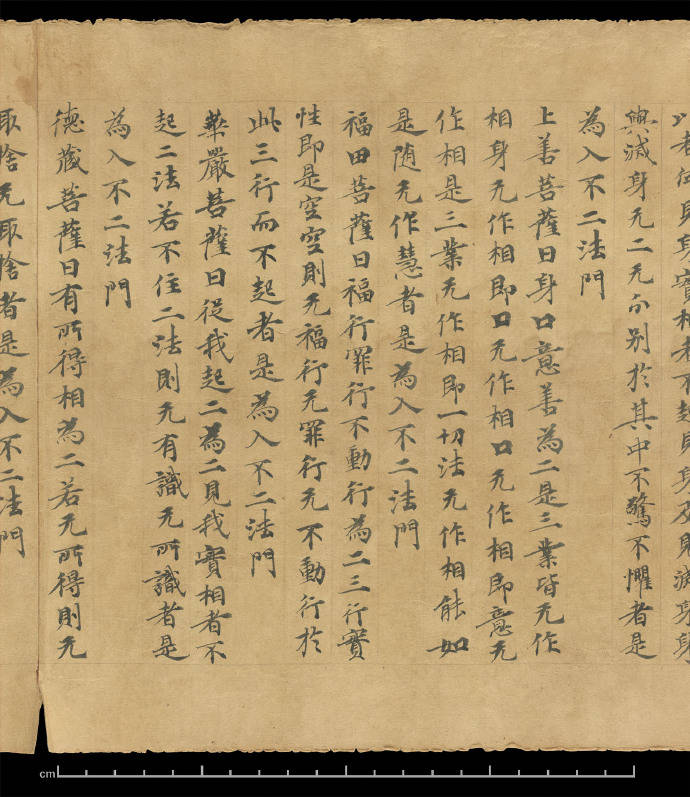 以者何見身實相者不起見身及見滅身身
與滅身无二无分别於其中不驚不懼者是
為入不二法門
上善菩薩曰身口意善為二是三業皆无作
相身无作相即口无作相口无作相即意无
作相是三業无作相即一切法无作相能如
是随无作慧者是為入不二法門
福田菩薩曰福行罪行不動行為二三行實
性即是空空則无福行无罪行无不動行於
此三行而不起者是為入不二法門
華嚴菩薩曰從我起二為二見我實相者不
起二法若不住二法則无有識无所識者是
為入不二法門
德藏菩薩曰有所得相為二若无所得則无
取捨无取捨者是為入不二法門
cm